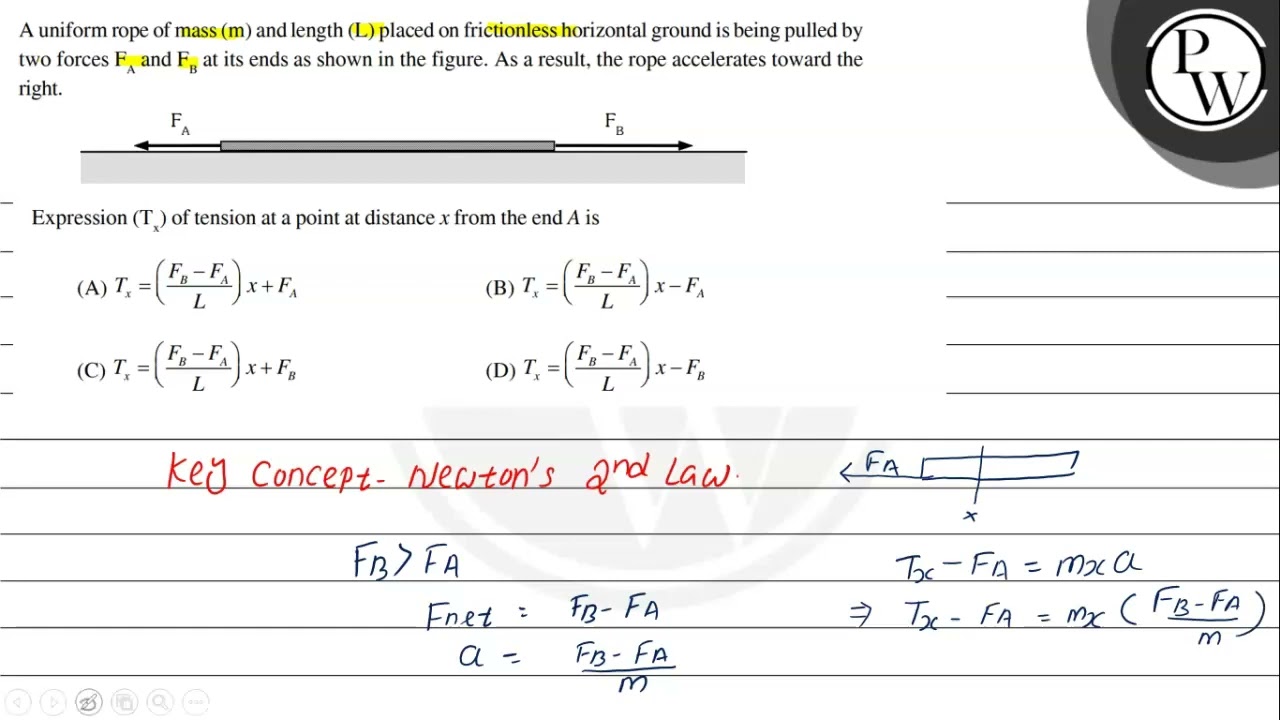 A uniform rope of mass (m) and length (L) placed on frictionless horizontal ground is being pulled by
two forces F_A and F_B at its ends as shown in the figure. As a result, the rope accelerates toward the
right.
P
W
F_A F_B
Expression (T_x) of tension at a point at distance x from the end A is
(A) T_x = ((F_B − F_A)/L) x + F_A (B) T_x = ((F_B − F_A)/L) x − F_A
(C) T_x = ((F_B − F_A)/L) x + F_B (D) T_x = ((F_B − F_A)/L) x − F_B
Key Concept- Newton's 2nd Law.
F_A
x
F_B > F_A
Fnet = F_B - F_A
a = (F_B - F_A)/m
T_x - F_A = m_x a
⇒ T_x - F_A = m_x ((F_B - F_A)/m)